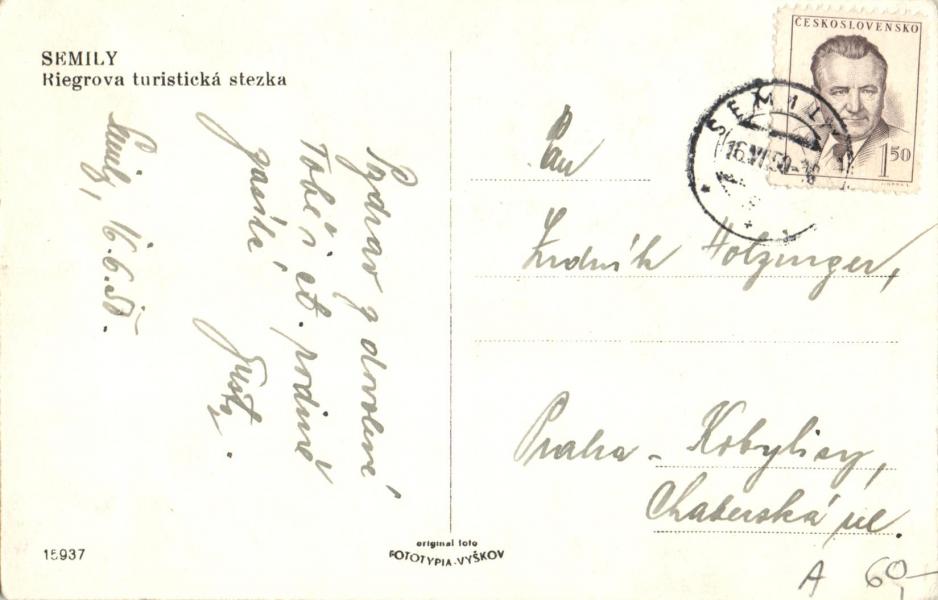 SEMILY
Riegrova turistická stezka
Semily, 16.6.50.
Pozdrav z dovolené
Tobě i ct. rodině
zasílá
ČESKOSLOVENSKO
1 50
SEMILY
16.VI.50-18
Pan
Ludvík Holzinger,
Praha - Kobylisy,
Chaberská ul.
15937
original foto
FOTOTYPIA-VYŠKOV
A 60,-